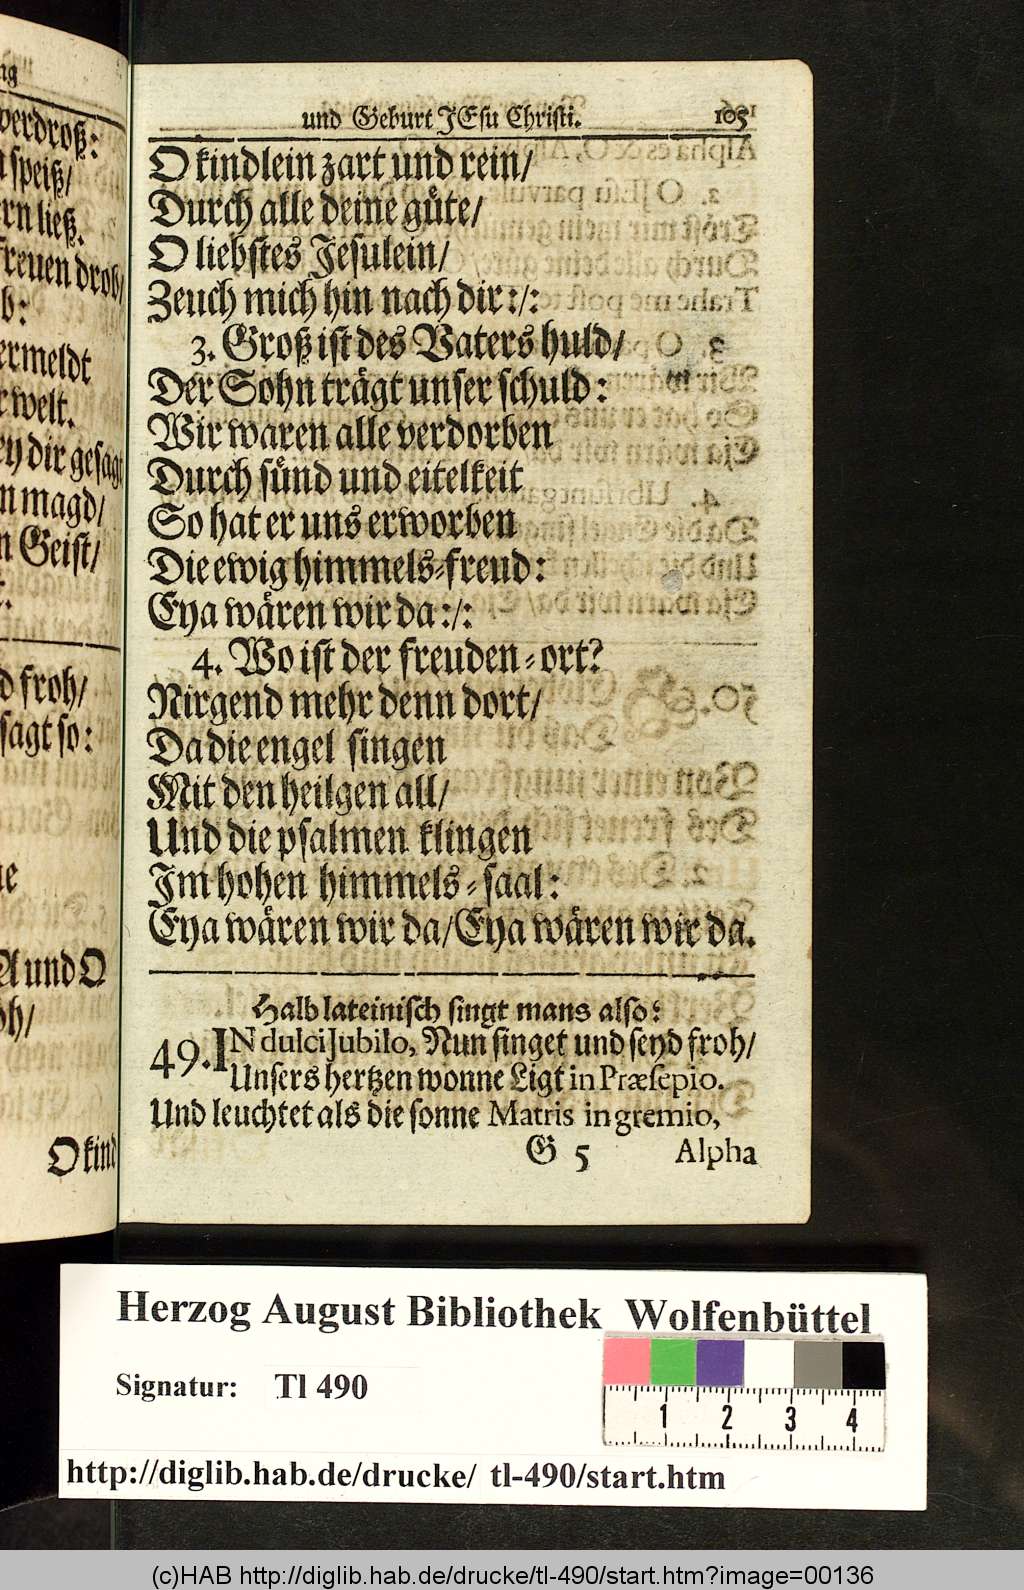 verdroß:
speiß/
ließ.
freuen droh/
b:
vermeldt
welt.
dir gesagt
magd/
Geist/
froh/
sagt so:
A und O
O kind
und Geburt JEsu Christi. 105
O kindlein zart und rein/
Durch alle deine güte/
O liebstes Jesulein/
Zeuch mich hin nach dir :/:
3. Groß ist des Vaters huld/
Der Sohn trägt unser schuld:
Wir waren alle verdorben
Durch sünd und eitelkeit
So hat er uns erworben
Die ewig himmels-freud:
Eya wären wir da :/:
4. Wo ist der freuden-ort?
Nirgend mehr denn dort/
Da die engel singen
Mit den heilgen all/
Und die psalmen klingen
Im hohen himmels-saal:
Eya wären wir da/ Eya wären wir da.
Halb lateinisch singt mans also:
49. IN dulci Jubilo, Nun singet und seyd froh/
Unsers hertzen wonne Ligt in Præsepio.
Und leuchtet als die sonne Matris in gremio,
G 5 Alpha
Herzog August Bibliothek Wolfenbüttel
Signatur: Tl 490
1 2 3 4
http://diglib.hab.de/drucke/ tl-490/start.htm
(c)HAB http://diglib.hab.de/drucke/tl-490/start.htm?image=00136